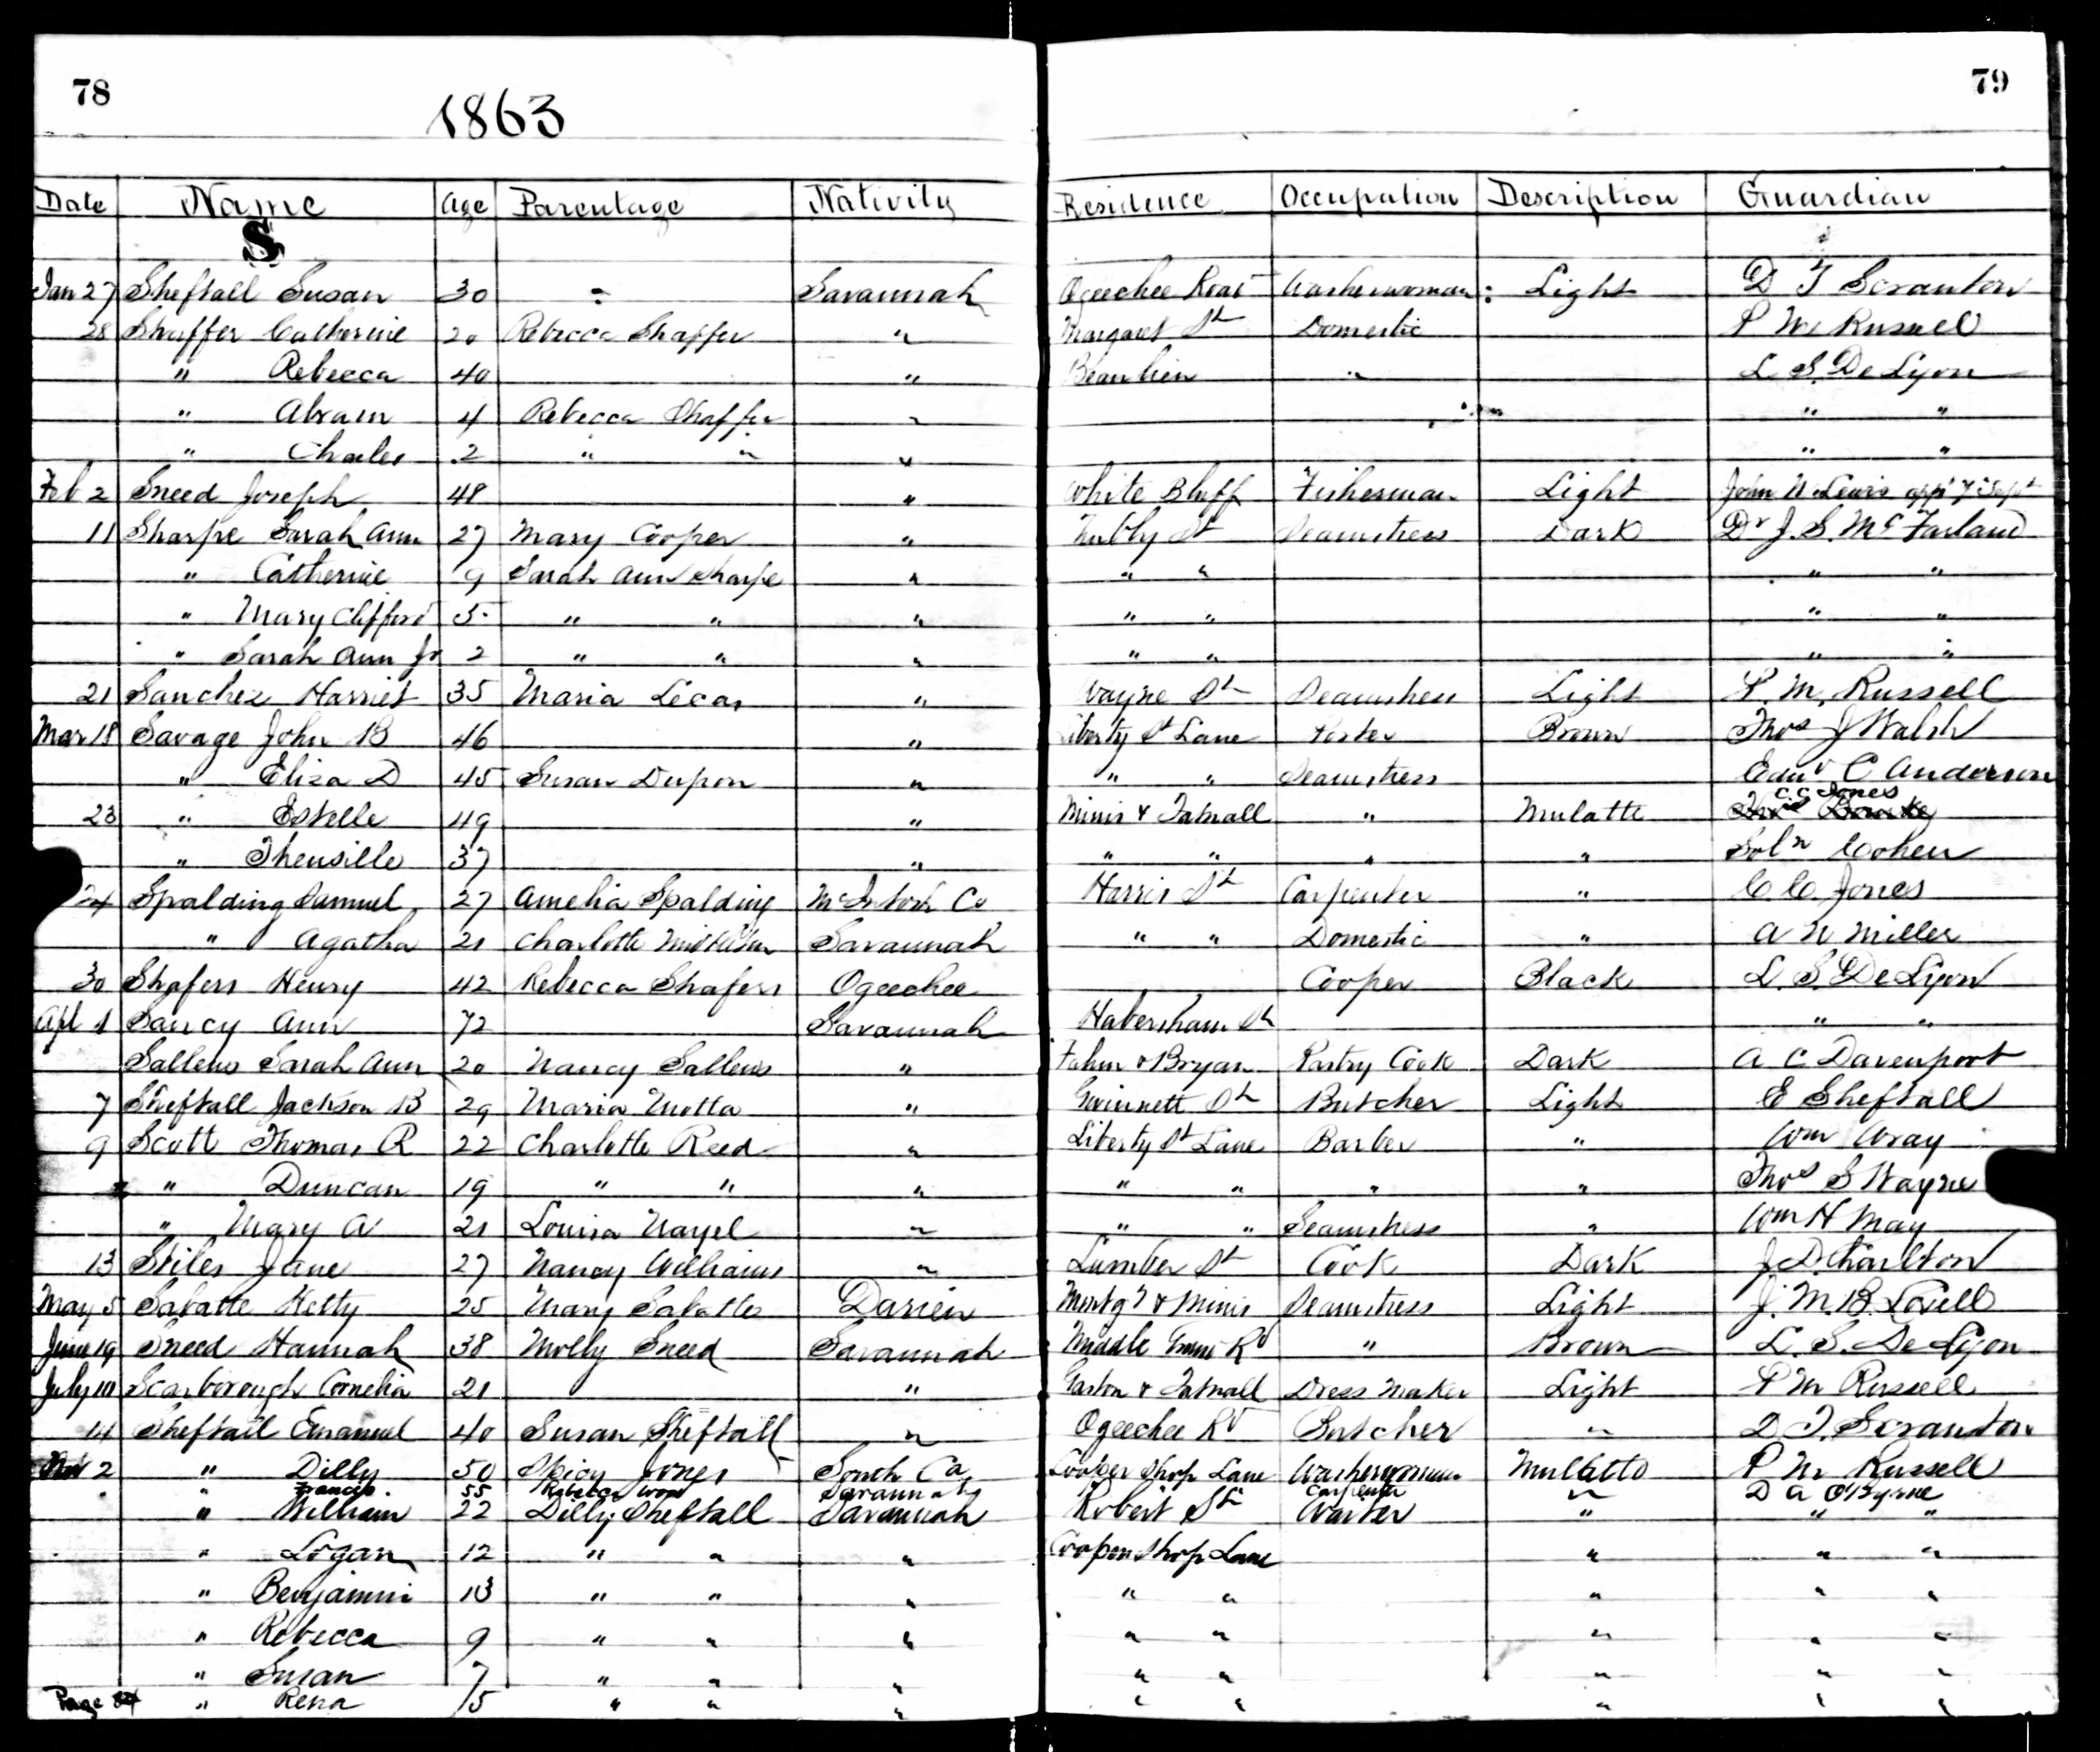 78
1863
79
Date Name Age Parentage Nativity Residence Occupation Description Guardian
S
Jan 27 Sheftall Susan 30 " Savannah Ogeechee Road Washerwoman : Light D T Scranton
28 Shaffer Catherine 20 Rebecca Shaffer " Margaret St Domestic P M Russell
" Rebecca 40 " Beaulieu " L. S. De Lyon
" Abram 4 Rebecca Shaffer " " "
" Charles 2 " " " " "
Feb 2 Sneed Joseph 48 " White Bluff Fisherman Light John N Lewis app 7 Sept
11 Sharpe Sarah Ann 27 Mary Cooper " St Seamstress Dark Dr J. S. Mc Farland
" Catherine 9 Sarah Ann Sharpe " " " " "
" Mary Clifford 5 " " " " " " "
" Sarah Ann Jr 2 " " " " " " "
21 Sanchez Harriet 35 Maria Lecas " Wayne St Seamstress Light P. M. Russell
Mar 18 Savage John B 46 " Liberty St Lane Porter Brown Thos J Walsh
" Eliza D 45 Susan Dupon " " " Seamstress Edwd C Anderson
C. C. Jones
23 " Estelle 49 " Minis & Tatnall " Mulatto Thos Bourke
" Theusille 37 " " " " " Soln Cohen
24 Spalding Samuel 27 Amelia Spalding McIntosh Co Harris St Carpenter " C. C. Jones
" Agatha 21 Charlotte Savannah " " Domestic " A N Miller
30 Shafers Henry 42 Rebecca Shafers Ogeechee Cooper Black L. S. De Lyon
Apl 1 Sancy Ann 72 Savannah Habersham St " "
Sallens Sarah Ann 20 Nancy Sallens " Fahm & Bryan Pastry Cook Dark A C Davenport
7 Sheftall Jackson B 29 Maria Motta " Gwinnett St Butcher Light E Sheftall
9 Scott Thomas R 22 Charlotte Reed " Liberty St Lane Barber " Wm Wray
" Duncan 19 " " " " " " " Thos S Wayne
" Mary A 21 Louisa Nayel " " " Seamstress " Wm H May
13 Stiles Jane 27 Nancy Williams " Lumber St Cook Dark J. D. Charlton
May 5 Sabatte Hetty 25 Mary Sabatte Darien Montgy & Minis Seamstress Light J. M. B. Lovell
June 19 Sneed Hannah 38 Molly Sneed Savannah Middle Rd " Brown L. S. De Lyon
July 10 Scarborough Cornelia 21 " Gaston & Tatnall Dress Maker Light P M Russell
14 Sheftall Emanuel 40 Susan Sheftall " Ogeechee Rd Butcher " D. T. Scranton
Nov 2 " Dilly 50 Spicy Jones South Ca Cooper Shop Lane Washerwoman Mulatto P M Russell
" Francis 55 Rebecca Wood Savannah Carpenter " D A O'Byrne
" William 22 Dilly Sheftall Savannah Robert St Waiter " " "
" Logan 12 " " " Cooper Shop Lane " " "
" Benjamin 13 " " " " " " " "
" Rebecca 9 " " " " " " " "
" Susan 7 " " " " " " " "
Page 84 " Rena 5 " " " " " " " "